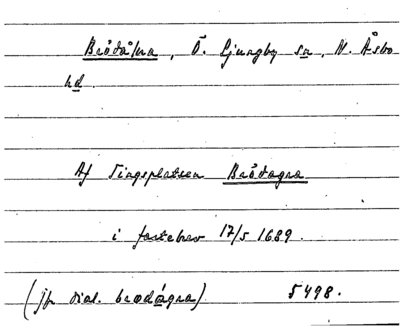 Brödåkra, Ö. Ljungby sn, N. Åsbo
hd.
Af Tingsplatsen Brödagra
i fastebrev 17/5 1689.
(jfr dial. brødágra) 5498.